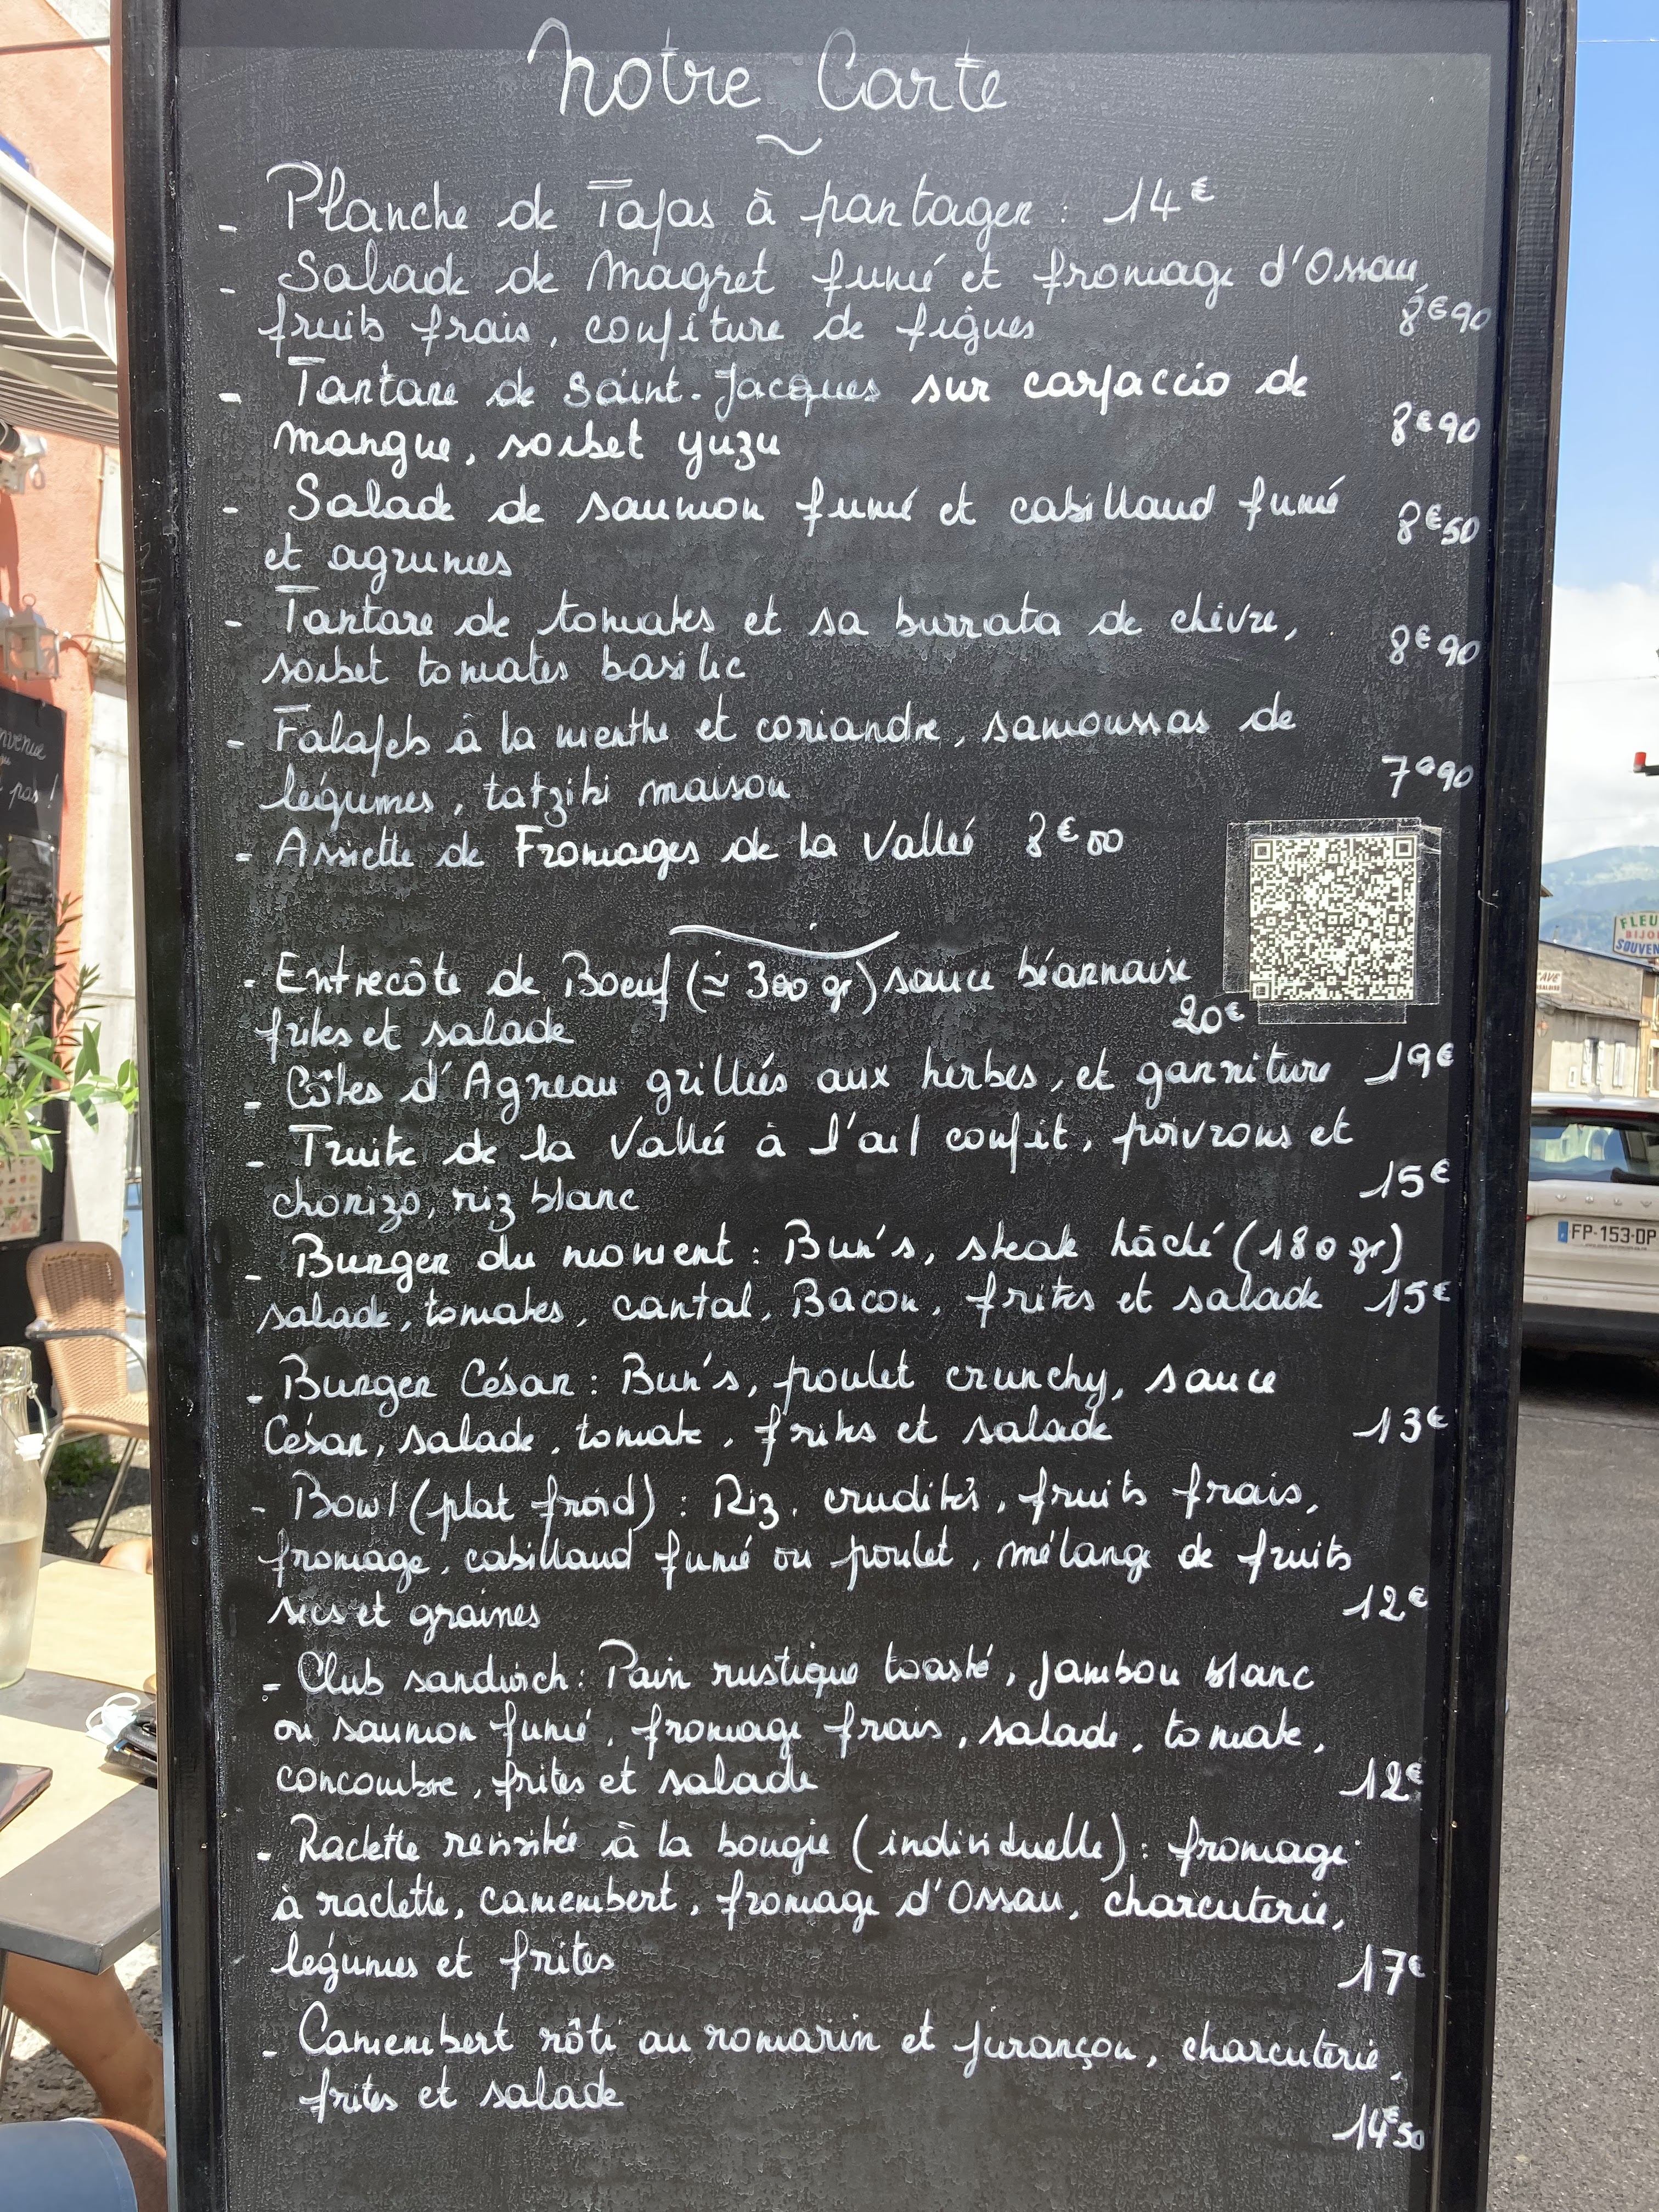 Notre Carte
- Planche de Tapas à partager : 14€
- Salade de Magret fumé et fromage d'Ossau,
fruits frais, confiture de figues 8€90
- Tartare de Saint-Jacques sur carpaccio de
mangue, sorbet yuzu 8€90
- Salade de saumon fumé et cabillaud fumé
et agrumes 8€50
- Tartare de tomates et sa burrata de chèvre,
sorbet tomates basilic 8€90
- Falafels à la menthe et coriandre, samoussas de
légumes, tatziki maison 7€90
- Assiette de Fromages de la Vallée 8€00
- Entrecôte de Boeuf (≃ 300 gr) sauce béarnaise
frites et salade 20€
- Côtes d'Agneau grillées aux herbes, et garniture 19€
- Truite de la Vallée à l'ail confit, poivrons et
chorizo, riz blanc 15€
- Burger du moment : Bun's, steak hâché (180 gr)
salade, tomates, cantal, Bacon, frites et salade 15€
- Burger César : Bun's, poulet crunchy, sauce
César, salade, tomate, frites et salade 13€
- Bowl (plat froid) : Riz, crudités, fruits frais,
fromage, cabillaud fumé ou poulet, mélange de fruits
secs et graines 12€
- Club sandwich : Pain rustique toasté, jambon blanc
ou saumon fumé, fromage frais, salade, tomate,
concombre, frites et salade 12€
- Raclette revisitée à la bougie (individuelle) : fromage
à raclette, camembert, fromage d'Ossau, charcuterie,
légumes et frites 17€
- Camembert rôti au romarin et jurançon, charcuterie,
frites et salade
14€50
pas !
FLEU
BIJO
SOUVEN
CAVE
VOLVO
FP-153-DP